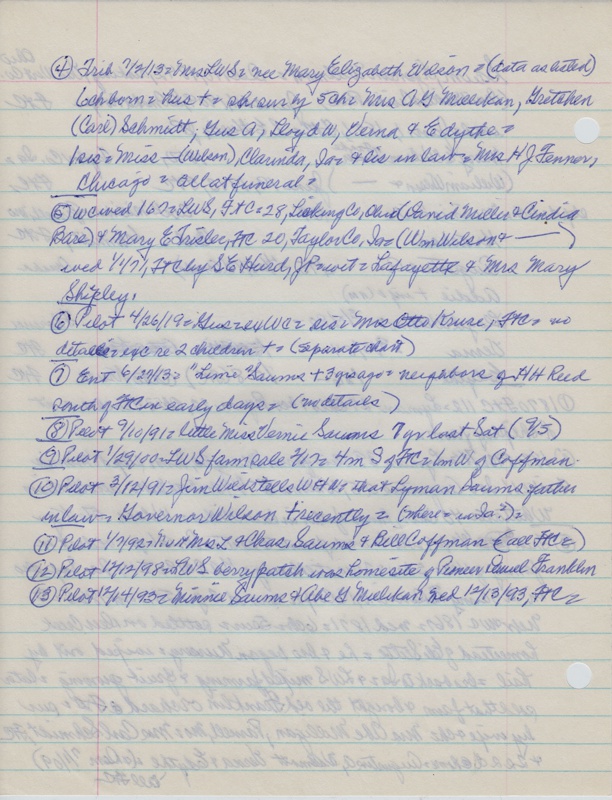 ④ Trib 7/2/13 = Mrs LWS = nee Mary Elizabeth Wilson = (data as listed)
6 ch born = hus + = she surv by 5 ch = Mrs A G Millikan, Gretchen
(Carl) Schmidt; Gus A, Lloyd W, Verna & Edythe =
1 sis = Miss — (Wilson), Clarinda, Ia = & sis in law = Mrs H J Fenner,
Chicago = all at funeral =
⑤ LWS, Ft C = 28, Licking Co, Ohio (David Miller & Cindia
Bare) & Mary E 20, Taylor Co, Ia = (Wm Wilson & ——)
wed 1/1/71, Ft C by S E Hurd, J P = wit = Lafayette & Mrs Mary
Shipley.
⑥ Pilot 4/26/19 = Gus = ex WC = sis = Mrs Otto Kruse, Ft C = no
details = exc re 2 children + = (separate chart)
⑦ Ent 6/27/13 = "Lime" Saums + 3 yrs ago = neighbors of H H Reed
south of Ft C in early days = (no details)
⑧ Pilot 9/10/91 = Little Miss Vernie Saums 7 yr last Sat (9/5)
⑨ Pilot 1/29/00 = LWS farm sale = 4 m S of Ft C = 1 m W of Coffman.
⑩ Pilot 3/12/91 = Jim tells that Lyman Saums father
in law = Governor Wilson + recently = (where = in Ia?) =
⑪ Pilot 1/7/92 = Mr & Mrs L & Chas. Saums & Bill Coffman (all Ft C)
⑫ Pilot 12/12/98 = LWS berry patch was homesite of Pioneer Daniel Franklin
⑬ Pilot 12/14/93 = Minnie Saums & Abe G Millikan wed 12/13/93, Ft C =